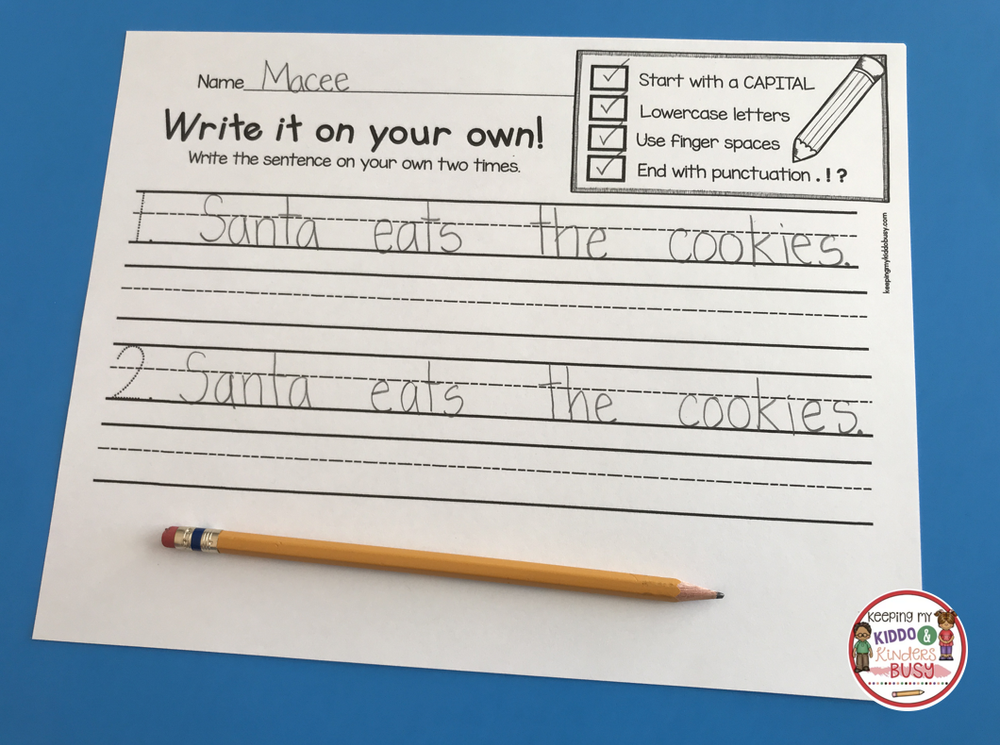 Name Macee
Start with a CAPITAL
Lowercase letters
Use finger spaces
End with punctuation . ! ?
Write it on your own!
Write the sentence on your own two times.
1. Santa eats the cookies.
2. Santa eats the cookies.
keepingmykiddobusy.com
Keeping My
KIDDO &
Kinders
BUSY